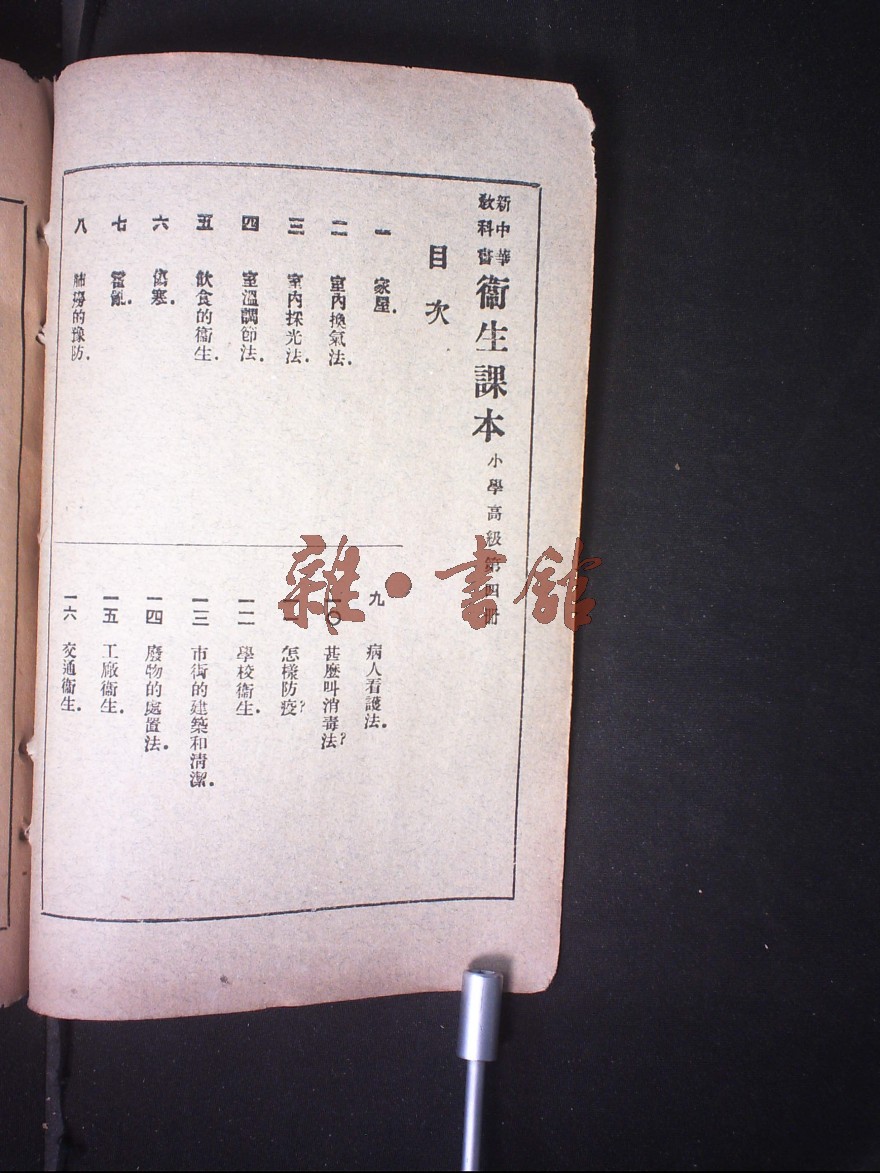 新中華
教科書
衞生課本 小學高級第四册
目次
一 家屋.
二 室內換氣法.
三 室內採光法.
四 室溫調節法.
五 飲食的衞生.
六 傷寒.
七 霍亂.
八 肺癆的豫防.
九 病人看護法.
一〇 甚麼叫消毒法?
一一 怎樣防疫?
一二 學校衞生.
一三 市街的建築和清潔.
一四 廢物的處置法.
一五 工廠衞生.
一六 交通衞生.
雜·書館